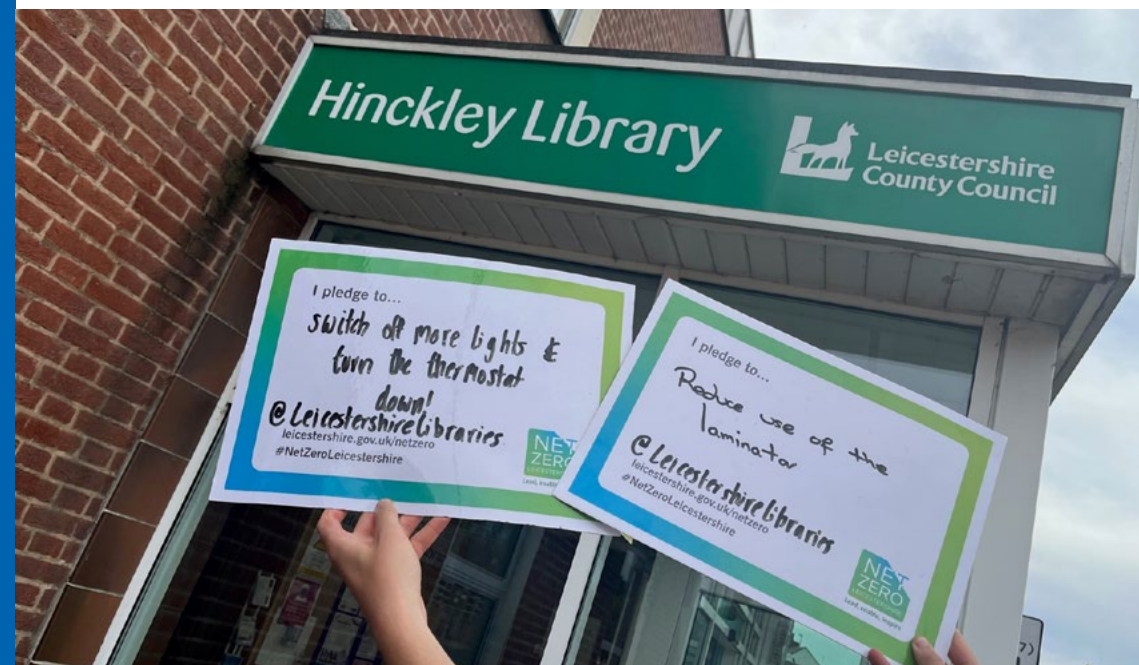 Hinckley Library
Leicestershire
County Council
I pledge to...
switch off more lights &
turn the thermostat
down!
@Leicestershirelibraries
leicestershire.gov.uk/netzero
#NetZeroLeicestershire
NET
ZERO
LEICESTERSHIRE
Lead, enable, inspire
I pledge to...
Reduce use of the
laminator
@Leicestershirelibraries
leicestershire.gov.uk/netzero
#NetZeroLeicestershire
NET
ZERO
LEICESTERSHIRE
Lead, enable, inspire